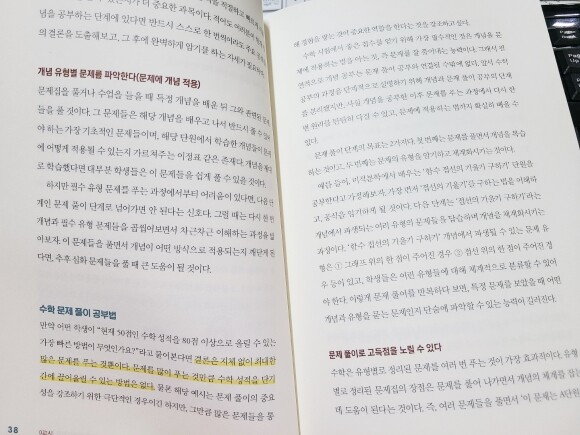 념을 공부하는 단계에 있다면 반드시 스스로 한 번씩이라도 주요
의 결론을 도출해보고, 그 후에 완벽하게 암기를 하는 자세가 필요하
개념 유형별 문제를 파악한다(문제에 개념 적용)
문제집을 풀거나 수업을 들을 때 특정 개념을 배운 뒤 그와 관련된
들을 풀 것이다. 그 문제들은 해당 개념을 배우고 나서 반드시 풀 수
야 하는 가장 기초적인 문제들이며, 해당 단원에서 학습한 개념들이
에 어떻게 적용될 수 있는지 가르쳐주는 이정표 같은 존재다. 개념을 제
로 학습했다면 대부분 학생들은 이 문제들을 쉽게 풀 수 있을 것이다.
하지만 필수 유형 문제를 푸는 과정에서부터 어려움이 있다면, 다음 단
계인 문제 풀이 단계로 넘어가면 안 된다는 신호다. 그럴 때는 다시 한 번
개념과 필수 유형 문제들을 곱씹어보면서 차근차근 이해하는 과정을
이보자. 이 문제들을 풀면서 개념이 어떤 방식으로 적용되는지 깨닫게 된
다면, 추후 심화 문제들을 풀 때 큰 도움이 될 것이다.
수학 문제 풀이 공부법
만약 어떤 학생이 "현재 50점인 수학 성적을 80점 이상으로 올릴 수 있는
가장 빠른 방법이 무엇인가요?"라고 묻어본다면 결론은 지체 없이 최대한
많은 문제를 푸는 것뿐이다. 문제를 많이 푸는 것만큼 수학 성적을 단기
간에 끌어올릴 수 있는 방법은 없다. 물론 해당 예시는 문제 풀이의 중요
성을 강조하기 위한 극단적인 경우이긴 하지만, 그만큼 많은 문제들을 통
38
해 경험을 쌓는 것이 중요한 역할을 한다는 것을 강조하고 싶다.
수학 시험에서 좋은 점수를 얻기 위해 가장 필수적인 것은 개념을 문
제에 적용하는 법을 아는 것, 즉 문제를 잘 풀어내는 능력이다. 그래서 전
면 원리를 탄탄히 다질 수 있고, 문제에 적용하는 법까지 확실히 배울 수
있다.
문제 풀이 단계의 목표는 2가지다. 첫 번째는 문제를 풀며 개념을 복습
하는 것이고, 두 번째는 문제의 유형을 암기하고 체계화시키는 것이다.
예를 들어, 미적분학에서 배우는 '함수 접선의 기울기 구하기' 단원을
공부한다고 가정해보자. 가장 먼저 '접선의 기울기'를 구하는 법을 이해하
고, 공식을 암기하게 될 것이다. 다음 단계는 '접선의 기울기 구하기'라는
개념에서 파생되는 여러 유형의 문제들을 답습하며 개념을 체계화시키는
과정이다. '함수 접선의 기울기 구하기' 개념에서 파생될 수 있는 문제 유
형은 ① 그래프 위의 한 점이 주어진 경우 ② 접선 위의 한 점이 주어진 경
우 등이 있고, 학생들은 이런 유형들에 대해 체계적으로 분류할 수 있어
야 한다. 이렇게 문제 풀이를 반복하다 보면, 특정 문제를 보았을 때 어떤
개념과 유형을 묻는 문제인지 단숨에 파악할 수 있는 능력이 길러진다.
문제 풀이로 고득점을 노릴 수 있다
수학은 유형별로 정리된 문제를 여러 번 푸는 것이 가장 효과적이다. 유형
별로 정리된 문제집의 장점은 문제를 풀어 나가면서 개념의 체계를 잡는
데 도움이 된다는 것이다. 즉, 여러 문제들을 풀면서 '이 문제는 A단원